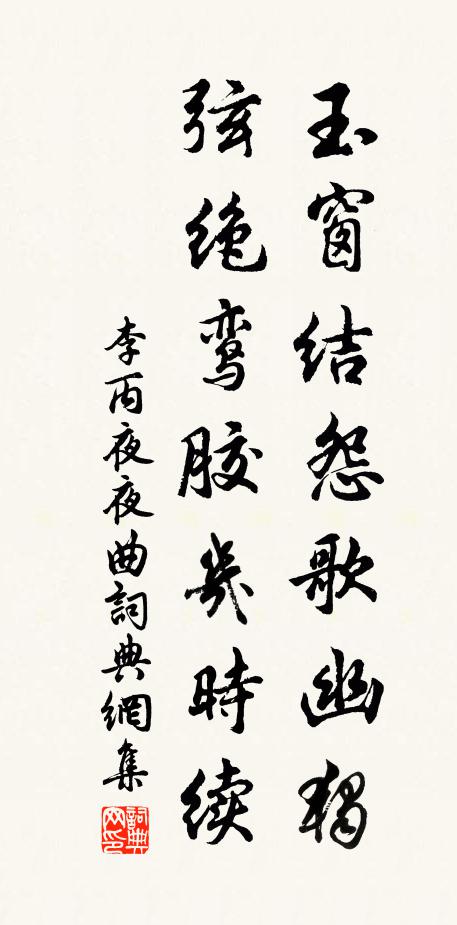 玉窗结怨歌幽独
弦绝鸾胶几時续
李丙夜夜曲詞典網集
詞典网印